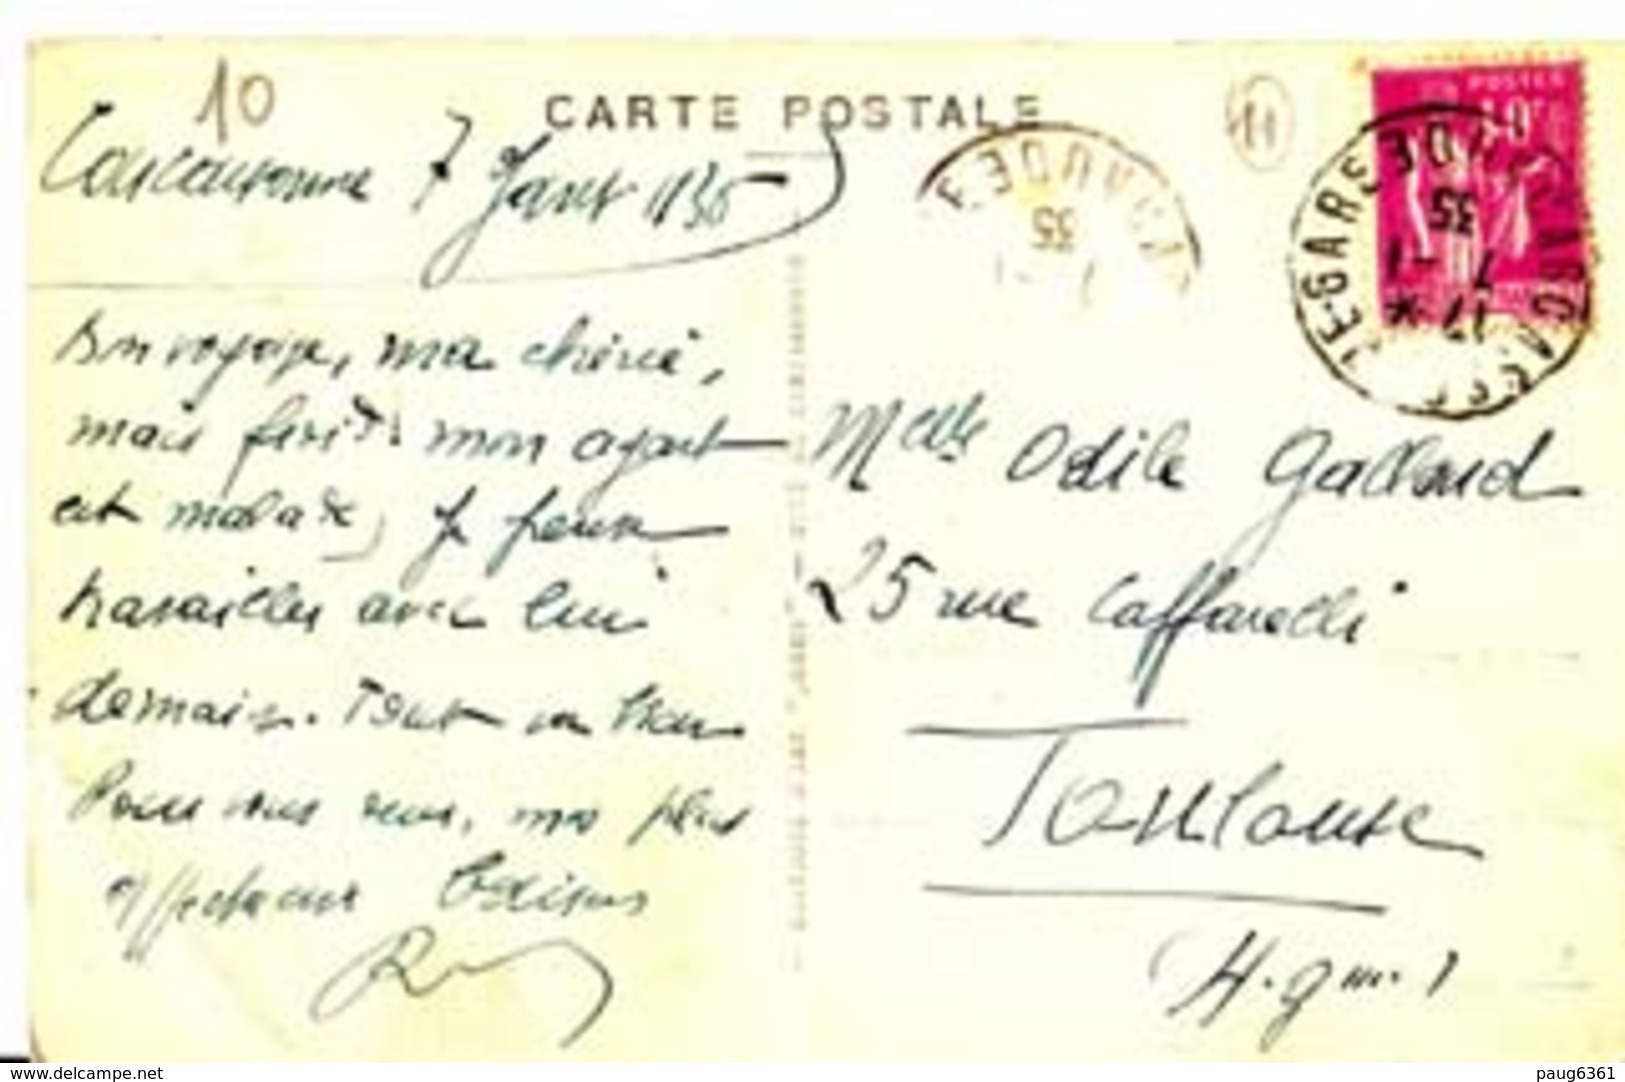 10
CARTE POSTALE
11
Carcassonne 7 Janv 1935
Bon voyage, ma chérie,
mais mon agent
est malade, je peux
travailler avec lui
demain. Tout va bien
Pour vous deux, mes plus
affectueux baisers
R
Melle Odile Galland
25 rue Caffarelli
Toulouse
H. Gne
POSTES
35
7 - 1
35
17 *
7 - 1
GARE
AUDE
delcampe.net
paug6361